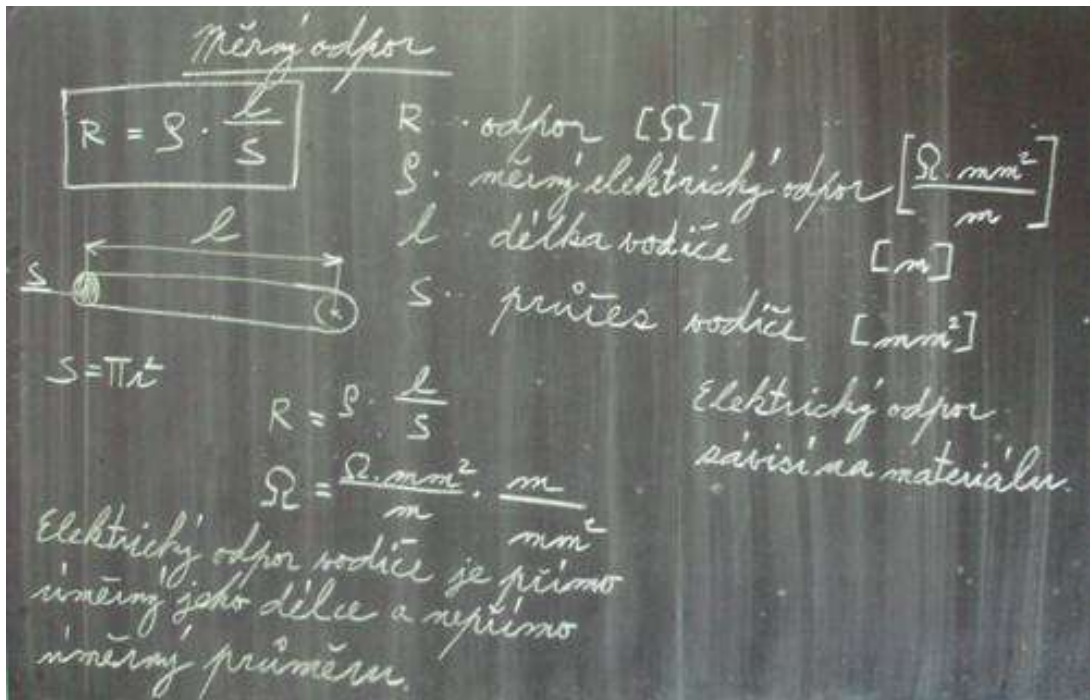 Měrný odpor
R = ρ · l/S
R ·· odpor [Ω]
ρ · měrný elektrický odpor [Ω·mm²/m]
l · délka vodiče [m]
S ·· průřez vodiče [mm²]
l
S
S = πr²
R = ρ · l/S
Ω = Ω·mm²/m · m/mm²
Elektrický odpor
závisí na materiálu.
Elektrický odpor vodiče je přímo
úměrný jeho délce a nepřímo
úměrný průměru.